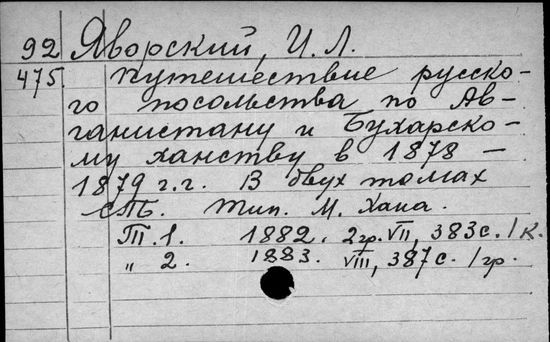 92 Яворский, И. Л.
475 Путешествие русско-
го посольства по Ав-
ганистану и Бухарско-
му ханству в 1878 -
1879 г.г. В двух томах
СПб. Тип. М. Хана.
Т. 1. 1882. 2гр. VII, 383 с. 1 к.
" 2. 1883. VIII, 387 с. 1 гр.